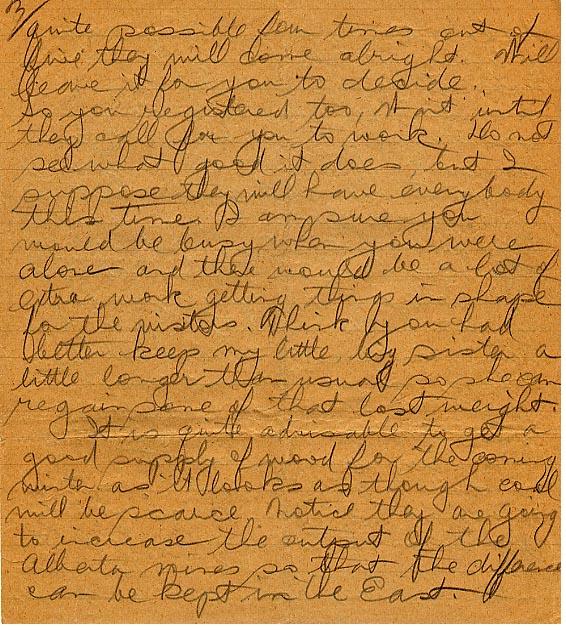 3/
quite possible four times out of
five they will come alright. Will
leave it for you to decide.
So you registered too, Wait until
they call for you to work. Do not
see what good it does, but I
suppose they will have everybody
this time. I am sure you
would be busy when you were
alone and there would be a lot of
extra work getting things in shape
for the visitors. Think you had
better keep my little big sister a
little longer than usual so she can
regain some of that lost weight.
It is quite advisable to get a
good supply of wood for the coming
winter as it looks as though coal
will be scarce. Notice they are going
to increase the output of the
Alberta mines so that the difference
can be kept in the East.